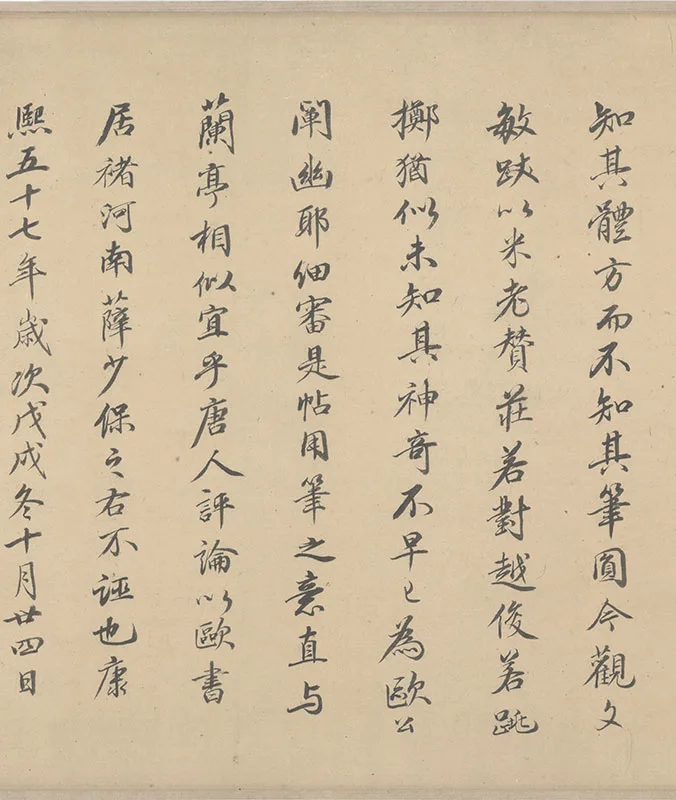 知其體方而不知其筆圓今觀文
敏跋以米老贊莊若對越俊若跳
擲猶似未知其神奇不早已為歐公
闡幽耶細審是帖用筆之意直与
蘭亭相似宜乎唐人評論以歐書
居褚河南薛少保之右不誣也康
熙五十七年歲次戊戌冬十月廿四日